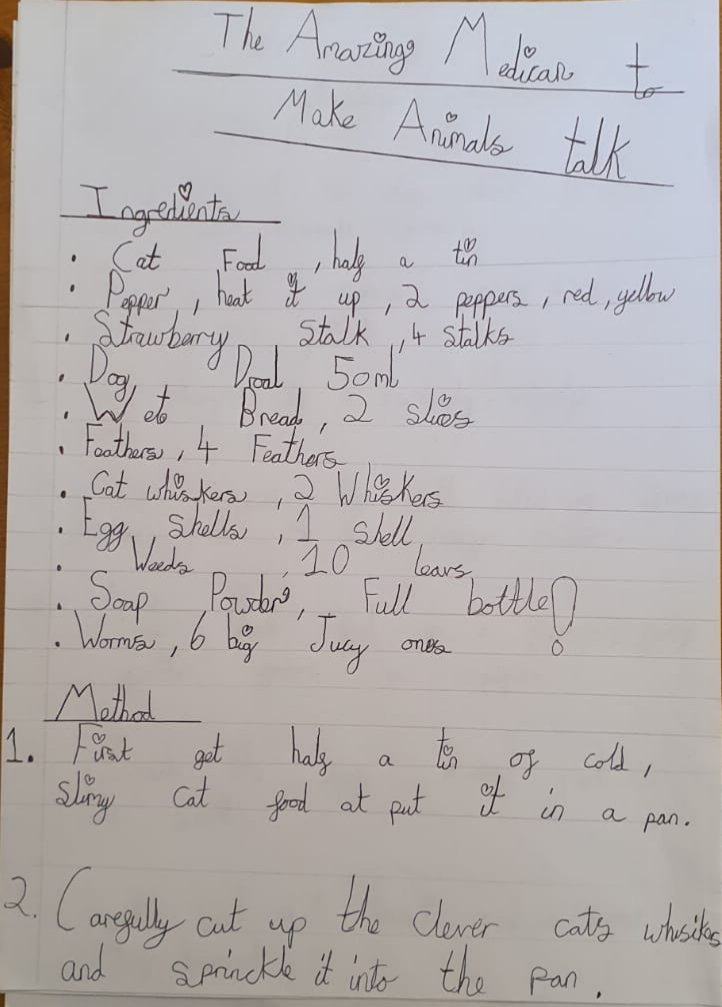 The Amazing Medican to
Make Animals talk
Ingredients
• Cat Food , half a tin
• Pepper , heat it up , 2 peppers , red , yellow
• Strawberry Stalk , 4 stalks
• Dog Droal 50ml
• Wet Bread , 2 slices
• Feathers , 4 Feathers
• Cat whiskers , 2 Whiskers
• Egg shells , 1 shell
• Weeds , 10 leavs
• Soap Powder , Full bottle!
• Worms , 6 big Jucy ones
Method
1. First get half a tin of cold ,
slimy cat food at put it in a pan.
2. Carefully cut up the clever cats whisikes
and sprinckle it into the pan .